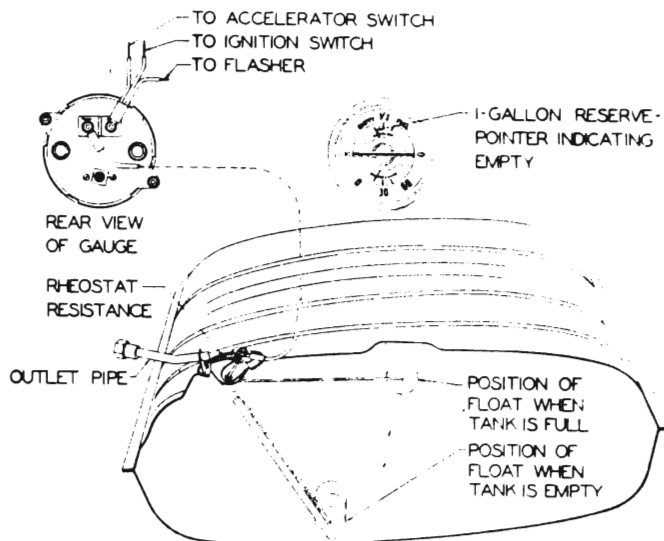 TO ACCELERATOR SWITCH
TO IGNITION SWITCH
TO FLASHER
1-GALLON RESERVE-
POINTER INDICATING
EMPTY
REAR VIEW
OF GAUGE
RHEOSTAT
RESISTANCE
OUTLET PIPE
POSITION OF
FLOAT WHEN
TANK IS FULL
POSITION OF
FLOAT WHEN
TANK IS EMPTY